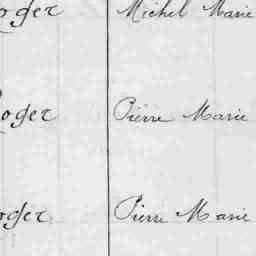 oger Michel Marie
Roger Pierre Marie
oger Pierre Marie